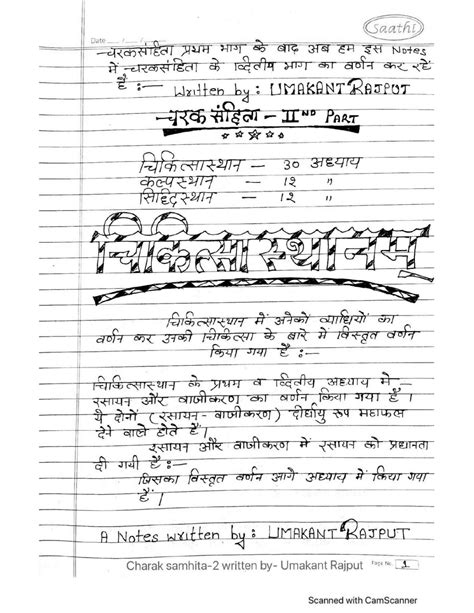 Saathi
Date
चरकसंहिता प्रथम भाग के बाद अब हम इस Notes
में चरकसंहिता के द्वितीय भाग का वर्णन कर रहें
हैं :— Written by: UMAKANT RAJPUT
चरक संहिता - II ND PART
चिकित्सास्थान — 30 अध्याय
कल्पस्थान — 12 "
सिद्धिस्थान — 12 "
चिकित्सास्थानम्
चिकित्सास्थान में अनेकों व्याधियों का
वर्णन कर उनकी चिकित्सा के बारे में विस्तृत वर्णन
किया गया है :—
चिकित्सास्थान के प्रथम व द्वितीय अध्याय में —
रसायन और वाजीकरण का वर्णन किया गया है।
ये दोनों (रसायन - वाजीकरण) दीर्घायु रूप महाफल
देने वाले होते हैं।
रसायन और वाजीकरण में रसायन को प्रधानता
दी गयी है :—
जिसका विस्तृत वर्णन आगे अध्याय में किया गया
है।
A Notes written by: UMAKANT RAJPUT
Charak samhita-2 written by- Umakant Rajput Page No. 1
Scanned with CamScanner